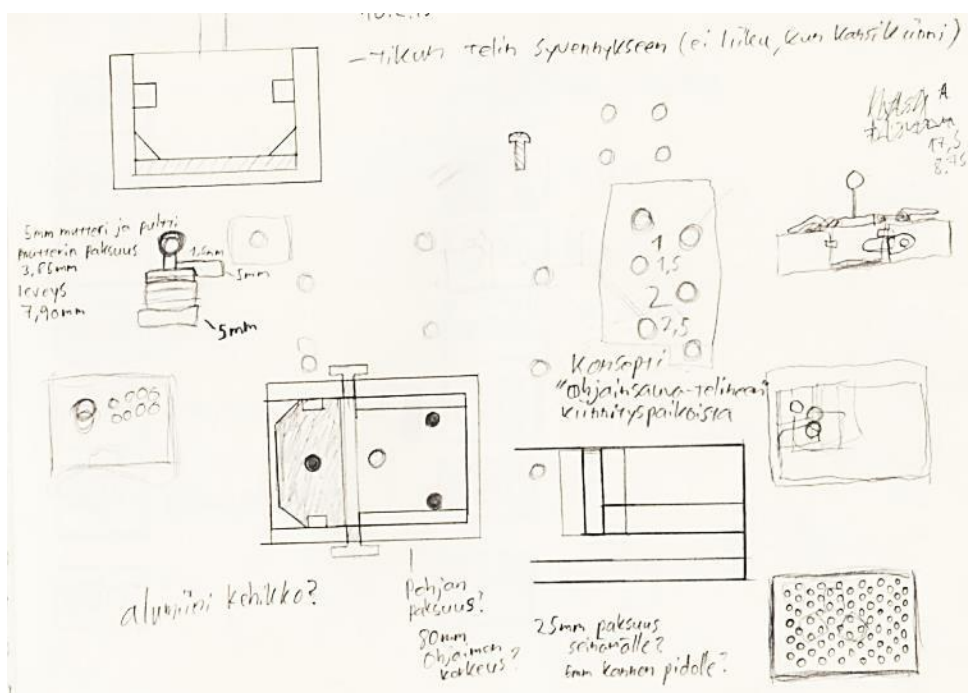 -tikun telin syvennykseen (ei liiku, kun kansi kiinni)
A
17,5
8.75
5mm mutteri ja pultti
mutterin paksuus
3,65mm
leveys
7,90mm
1,5mm
5mm
5mm
1
1,5
2
2,5
Konsepti
"Ohjainsauva-telineen"
kiinnityspaikoista
alumiini kehikko?
Pohjan
paksuus?
80mm
Ohjaimen
korkeus?
25mm paksuus
seinämälle?
5mm kannen pidolle?